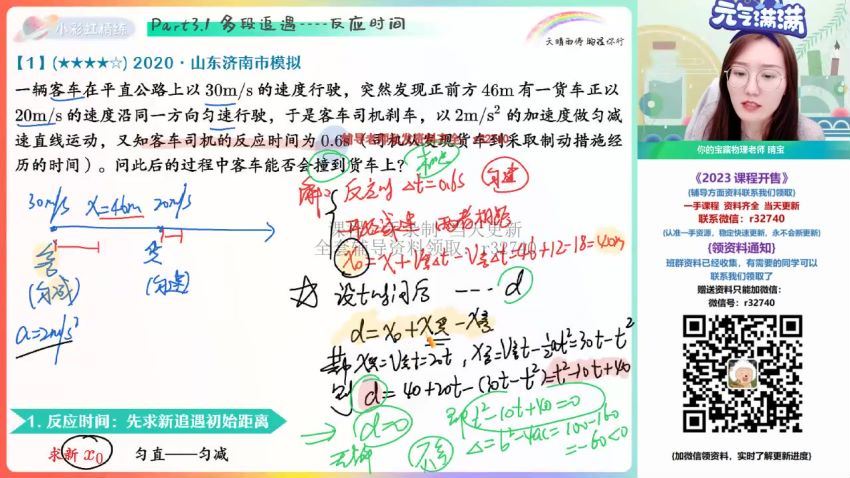 小彩虹精练
Part3.1 多段追遇----反应时间
天晴雨停 晴渡你行
元气满满
【1】(★★★★☆) 2020·山东济南市模拟
一辆客车在平直公路上以 30m/s 的速度行驶，突然发现正前方 46m 有一货车正以
20m/s 的速度沿同一方向匀速行驶，于是客车司机刹车，以 2m/s² 的加速度做匀减
速直线运动，又知客车司机的反应时间为 0.6s（司机从发现货车到采取制动措施经
历的时间）。问此后的过程中客车能否会撞到货车上？
30m/s X=46m 20m/s
客 货
(匀减) (匀速)
a=2m/s²
解: 反应时 Δt=0.6s 匀速
开始减速 两者相距
x₀=X+V货Δt-V客Δt=46+12-18=40m
全套辅导资料领取：r32740
设t时间后 ---- d
d=x₀+x货-x客
其中 x货=V货t=20t, x客=V客t-½at²=30t-t²
到 d=40+20t-(30t-t²)=t²-10t+40
⇒ d=0 即t²-10t+40=0
Δ=b²-4ac=100-160
=-60<0
无解 不会
1. 反应时间：先求新追遇初始距离
求新 x₀ 匀直——匀减
你的宝藏物理老师 晴宝
《2023 课程开售》
(辅导方面资料联系我们领取)
一手课程 资料齐全 当天更新
联系微信：r32740
(认准一手资源，稳定快速更新，永不会断更新)
{领资料通知}
班群资料已经收集，有需要的同学可以
联系我们领取了
赠送资料只能加微信：
微信号：r32740
(加微信领资料，实时了解更新进度)